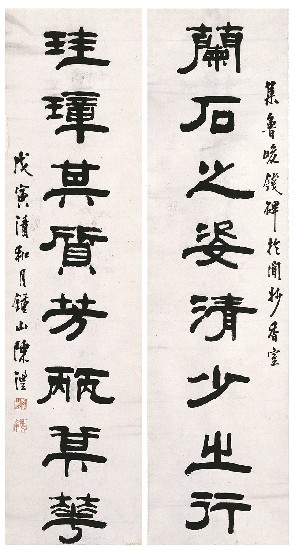 集魯峻錢碑於聞妙香室
蘭石之姿清少之行
珪璋其質芳麗其華
戊寅清和月鍾山陳